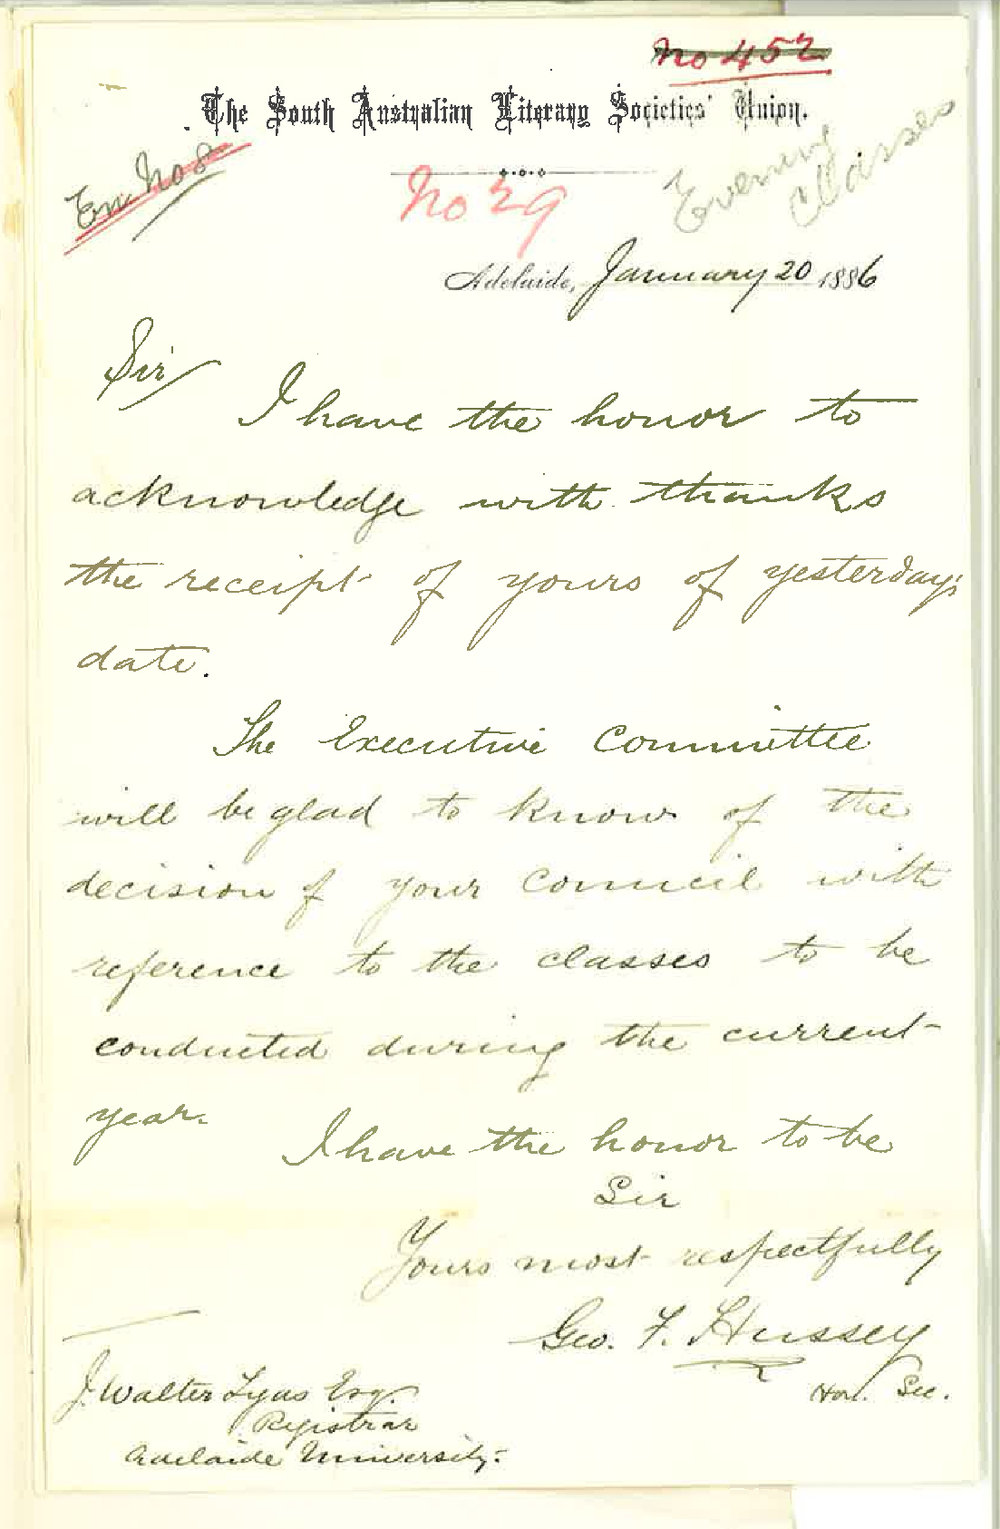 No 452
The South Australian Literary Societies' Union.
En No 8
No 29
Evening
Classes
Adelaide, January 20 1886
Sir
I have the honor to
acknowledge with thanks
the receipt of yours of yesterday's
date.
The Executive Committee
will be glad to know of the
decision of your Council with
reference to the classes to be
conducted during the current
year.
I have the honor to be
Sir
Yours most respectfully
Geo. F. Hussey
Hon. Sec.
J. Walter Tyas Esq.
Registrar
Adelaide University.